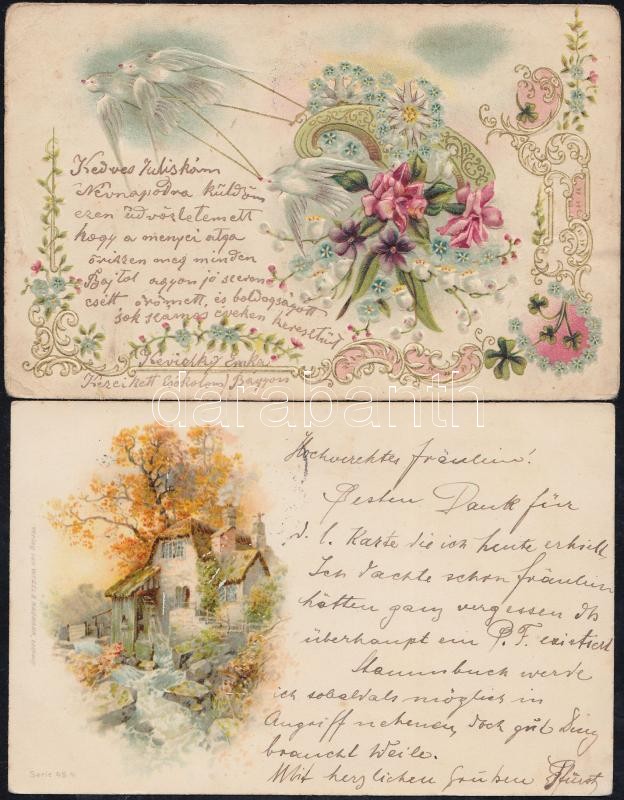 Kedves Juliskám
Névnapodra küldöm
ezen üdvözletemett
hogy a menyei atya
őrizzen meg minden
Bajtol agyon jó szeren
csétt örömett, és boldogságott
sok számos éveken keresztül
Emka
Kezeikett Csokolom
darabanth
Hochverehrtes Fräulein!
Besten Dank für
d. l. Karte die ich heute erhielt
Ich dachte schon Fräulein
hätten ganz vergessen ds
überhaupt ein P. F. existiert
Stammbuch werde
ich sobald als möglich in
Angriff nehmen, doch gut Ding
braucht Weile.
Mit herzlichen Grüßen
Verlag von
Serie 48